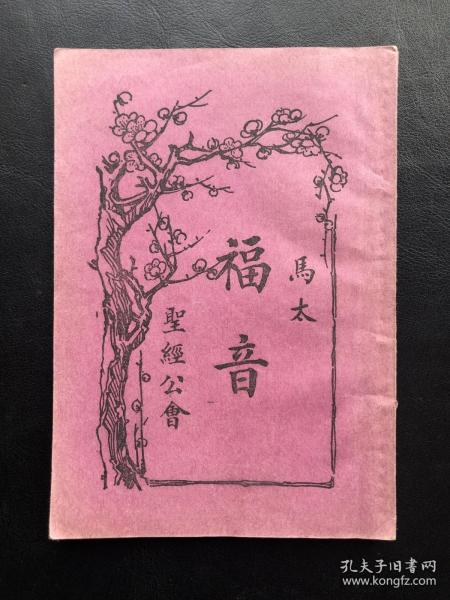 馬太
福音
聖經公會
孔夫子旧书网
www.kongfz.com